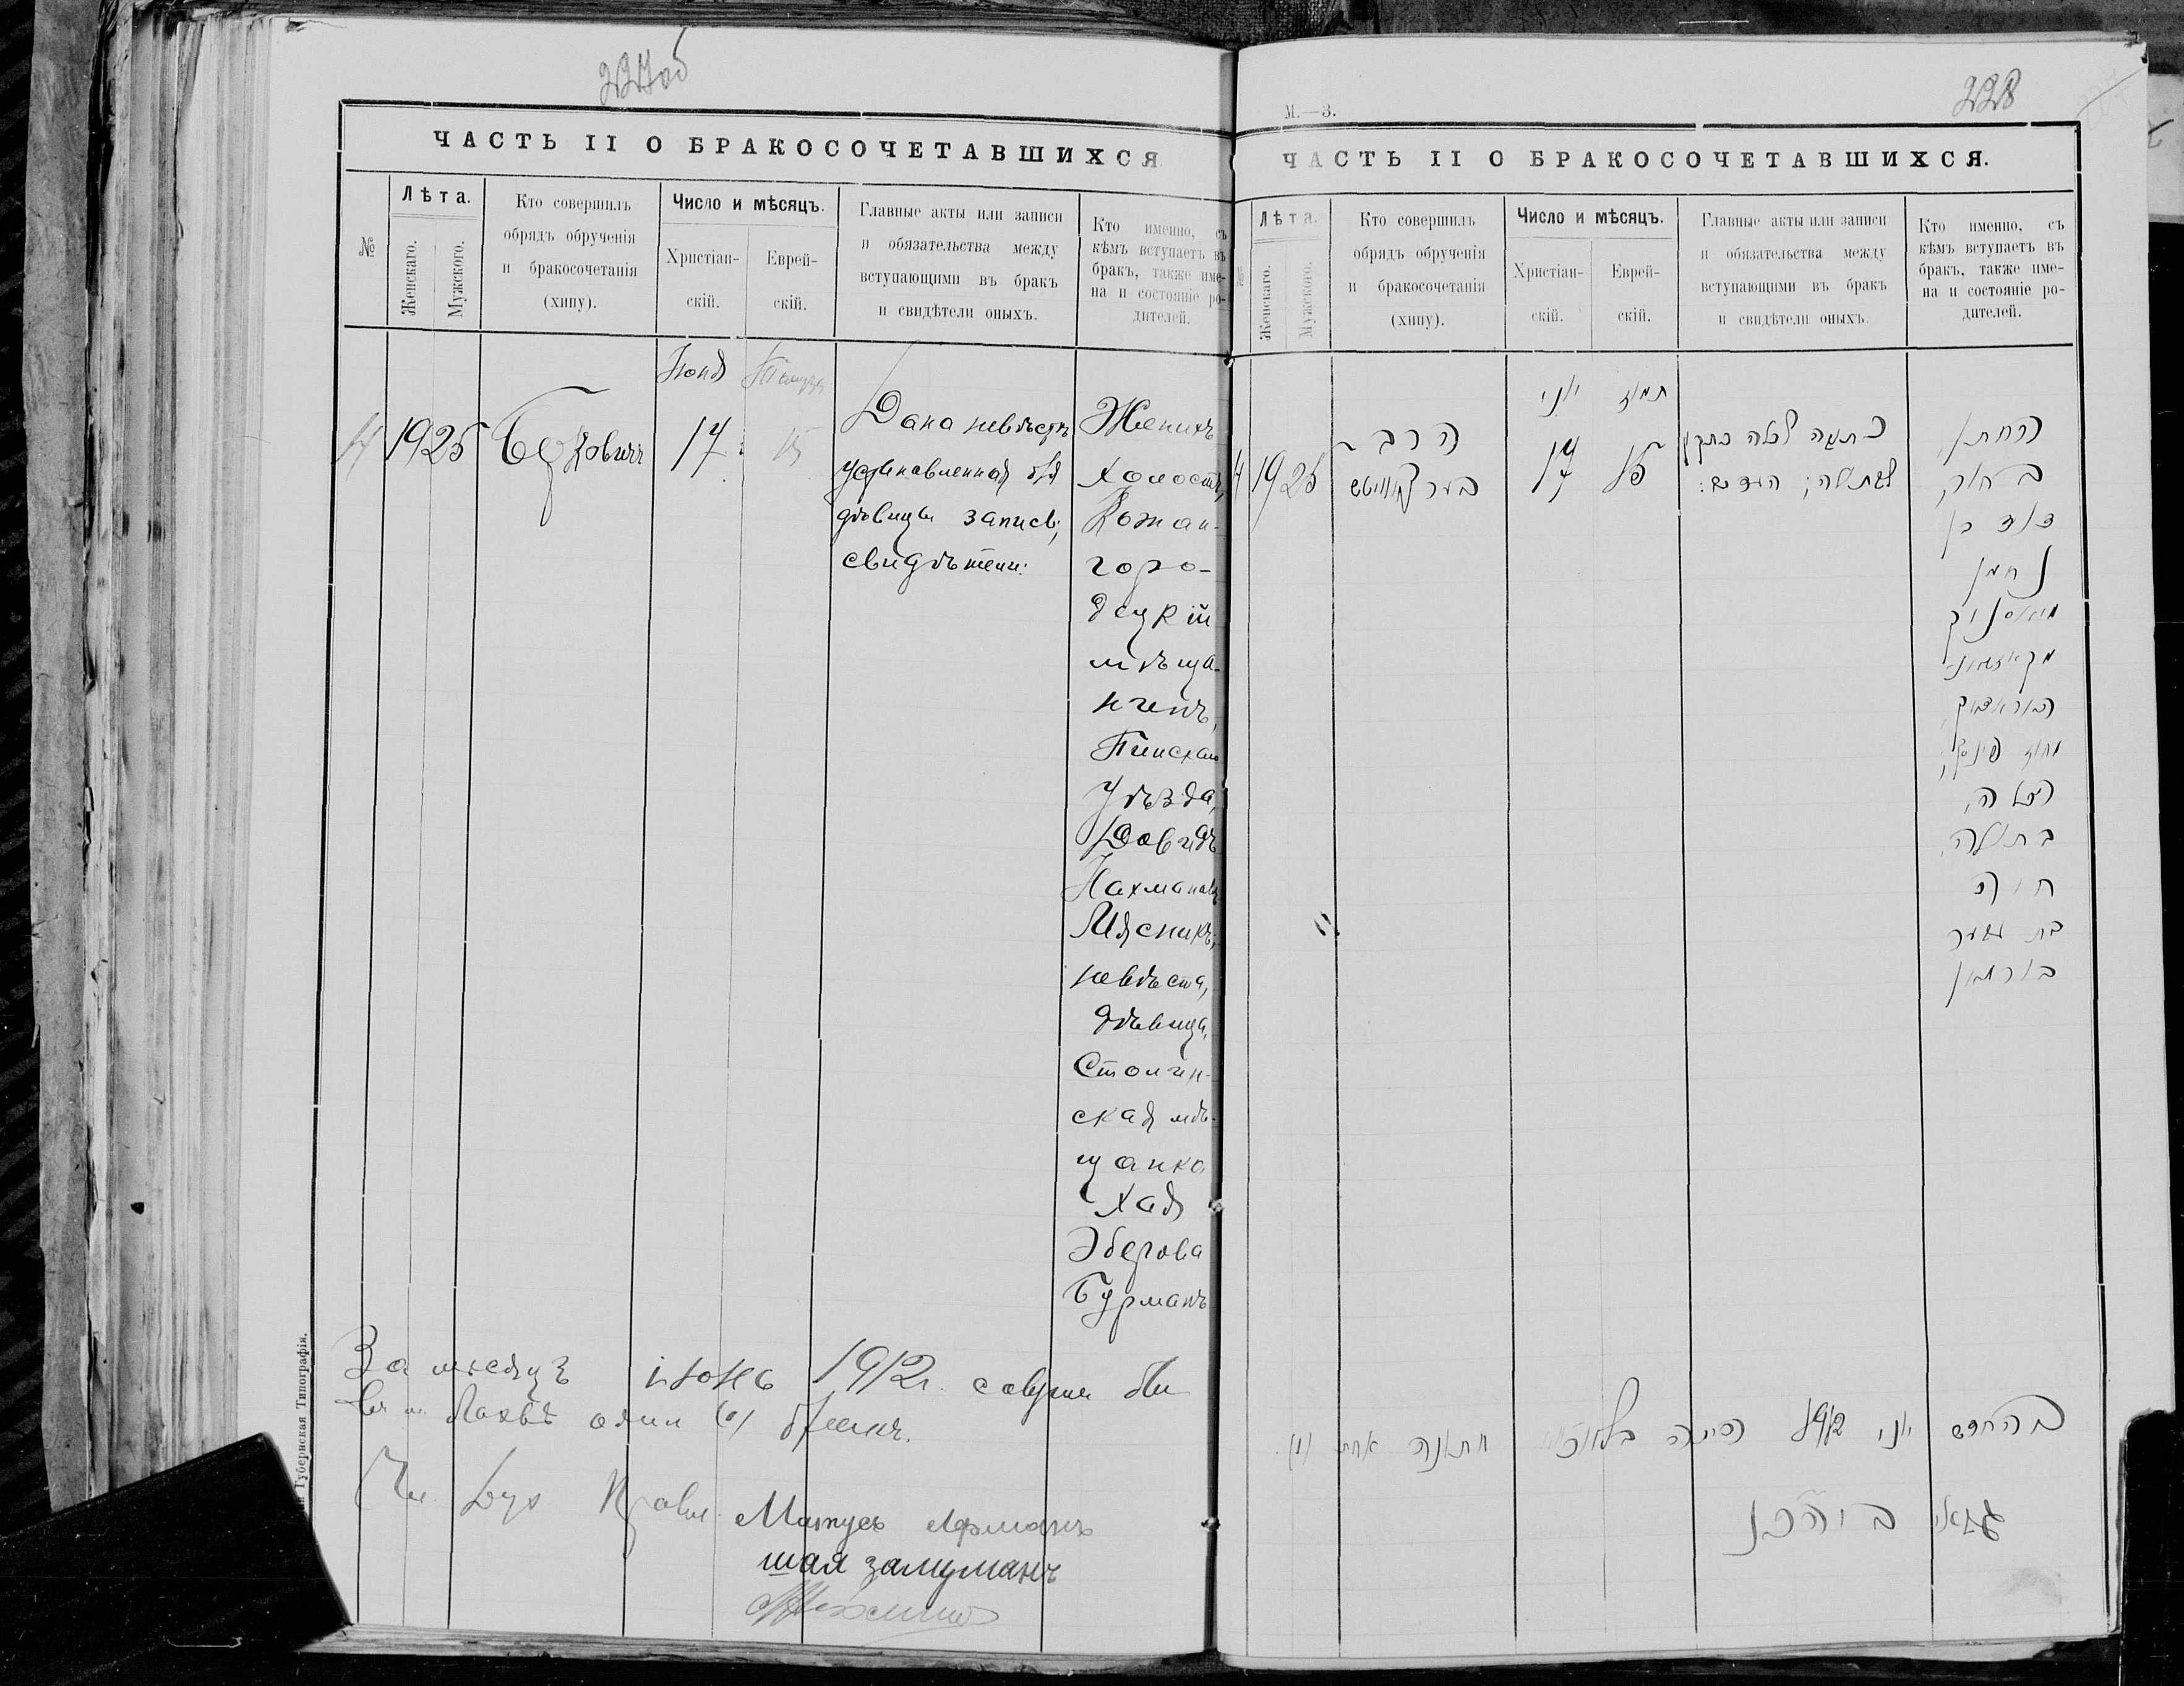 227об
ЧАСТЬ II О БРАКОСОЧЕТАВШИХСЯ
№
Лѣта.
Женскаго.
Мужского.
Кто совершилъ
обрядъ обрученія
и бракосочетанія
(хипу).
Число и мѣсяцъ.
Христіан-
скій.
Еврей-
скій.
Главные акты или записи
и обязательства между
вступающими въ бракъ
и свидѣтели оныхъ.
Кто именно, съ
кѣмъ вступаетъ въ
бракъ, также име-
на и состояніе ро-
дителей.
4
19
25
Берковичъ
Іюня
17
Тамуза
15
Дана невѣстѣ
установленная для
дѣвицы запись;
свидѣтели:
Женихъ
холостъ,
Кожан-
горо-
децкій
мѣща-
нинъ,
Пинскаго
уѣзда,
Довидъ
Нахмановъ
Мясникъ;
невѣста,
дѣвица,
Столин-
ская мѣ-
щанка
Хая
Эберова
Бурманъ
За мѣсяцъ іюнь 1912 г.
въ м. Лахвѣ одинъ (1) бракъ.
Чл. Дух. Правл. Матусъ
шая залцманъ
Губернская Типографія.
М.—3.
228
ЧАСТЬ II О БРАКОСОЧЕТАВШИХСЯ.
№
Лѣта.
Женскаго.
Мужского.
Кто совершилъ
обрядъ обрученія
и бракосочетанія
(хипу).
Число и мѣсяцъ.
Христіан-
скій.
Еврей-
скій.
Главные акты или записи
и обязательства между
вступающими въ бракъ
и свидѣтели оныхъ.
Кто именно, съ
кѣмъ вступаетъ въ
бракъ, также име-
на и состояніе ро-
дителей.
4
19
25
הרב
בערקאוויטש
יוני
17
תמוז
15
כתובה לכלה כתקון
לבתולה; העדים:
החתן,
בחור,
דוד בן
נחמן
מיאסניק
מקאזאן
האראדוק,
מחוז פינסק;
הכלה,
בתולה,
חיה
בת עבער
בורמאן
בהחדש יוני 1912 היתה בלאחווא חתונה אחת (1).